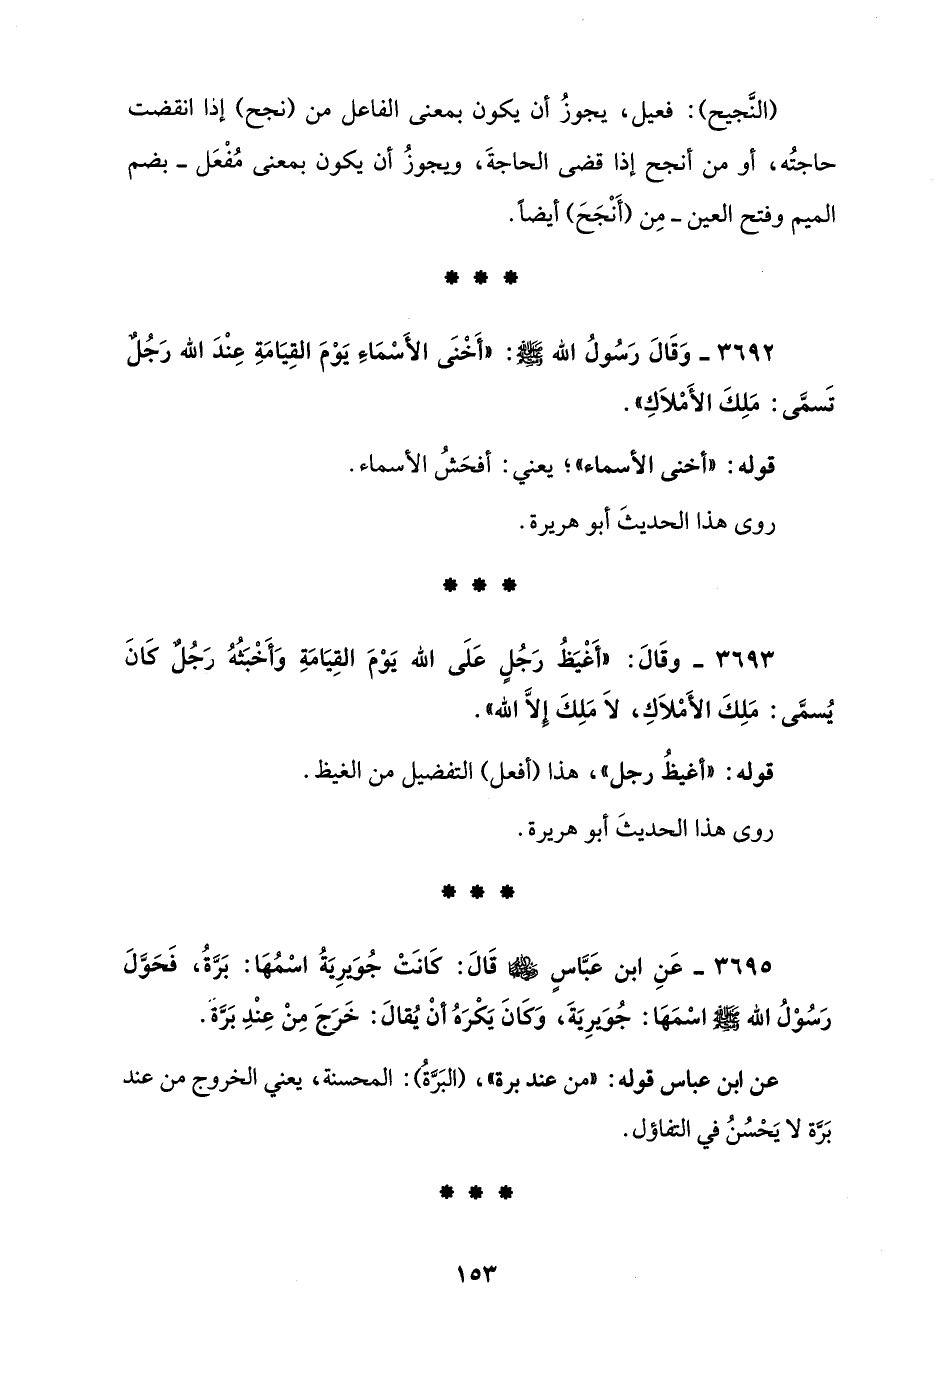 (النَّجيح): فعيل، يجوزُ أن يكون بمعنى الفاعل من (نجح) إذا انقضت
حاجتُه، أو من أنجح إذا قضى الحاجةَ، ويجوزُ أن يكون بمعنى مُفْعَل ـ بضم
الميم وفتح العين ـ مِن (أَنْجَحَ) أيضاً.
* * *
٣٦٩٢ ـ وَقَالَ رَسُولُ الله ﷺ: «أَخْنَى الأَسْمَاءِ يَوْمَ القِيَامَةِ عِنْدَ الله رَجُلٌ
تَسمَّى: مَلِكَ الأَمْلاَكِ».
قوله: «أخنى الأسماء»؛ يعني: أفحَشُ الأسماء.
روى هذا الحديثَ أبو هريرة.
* * *
٣٦٩٣ ـ وقَالَ: «أَغْيَظُ رَجُلٍ عَلَى الله يَوْمَ القِيَامَةِ وَأَخْبَثُهُ رَجُلٌ كَانَ
يُسمَّى: مَلِكَ الأَمْلاَكِ، لاَ مَلِكَ إِلاَّ الله».
قوله: «أغيظُ رجل»، هذا (أفعل) التفضيل من الغيظ.
روى هذا الحديثَ أبو هريرة.
* * *
٣٦٩٥ ـ عَنِ ابن عَبَّاسٍ ﵁ قَالَ: كَانَتْ جُوَيرِيَةُ اسْمُهَا: بَرَّةُ، فَحَوَّلَ
رَسُوْلُ الله ﷺ اسْمَهَا: جُوَيرِيَةَ، وَكَانَ يَكْرَهُ أنْ يُقالَ: خَرَجَ مِنْ عِنْدِ بَرَّةَ.
عن ابن عباس قوله: «من عند برة»، (البَرَّةُ): المحسنة، يعني الخروج من عند
بَرَّة لا يَحْسُنُ في التفاؤل.
* * *
١٥٣